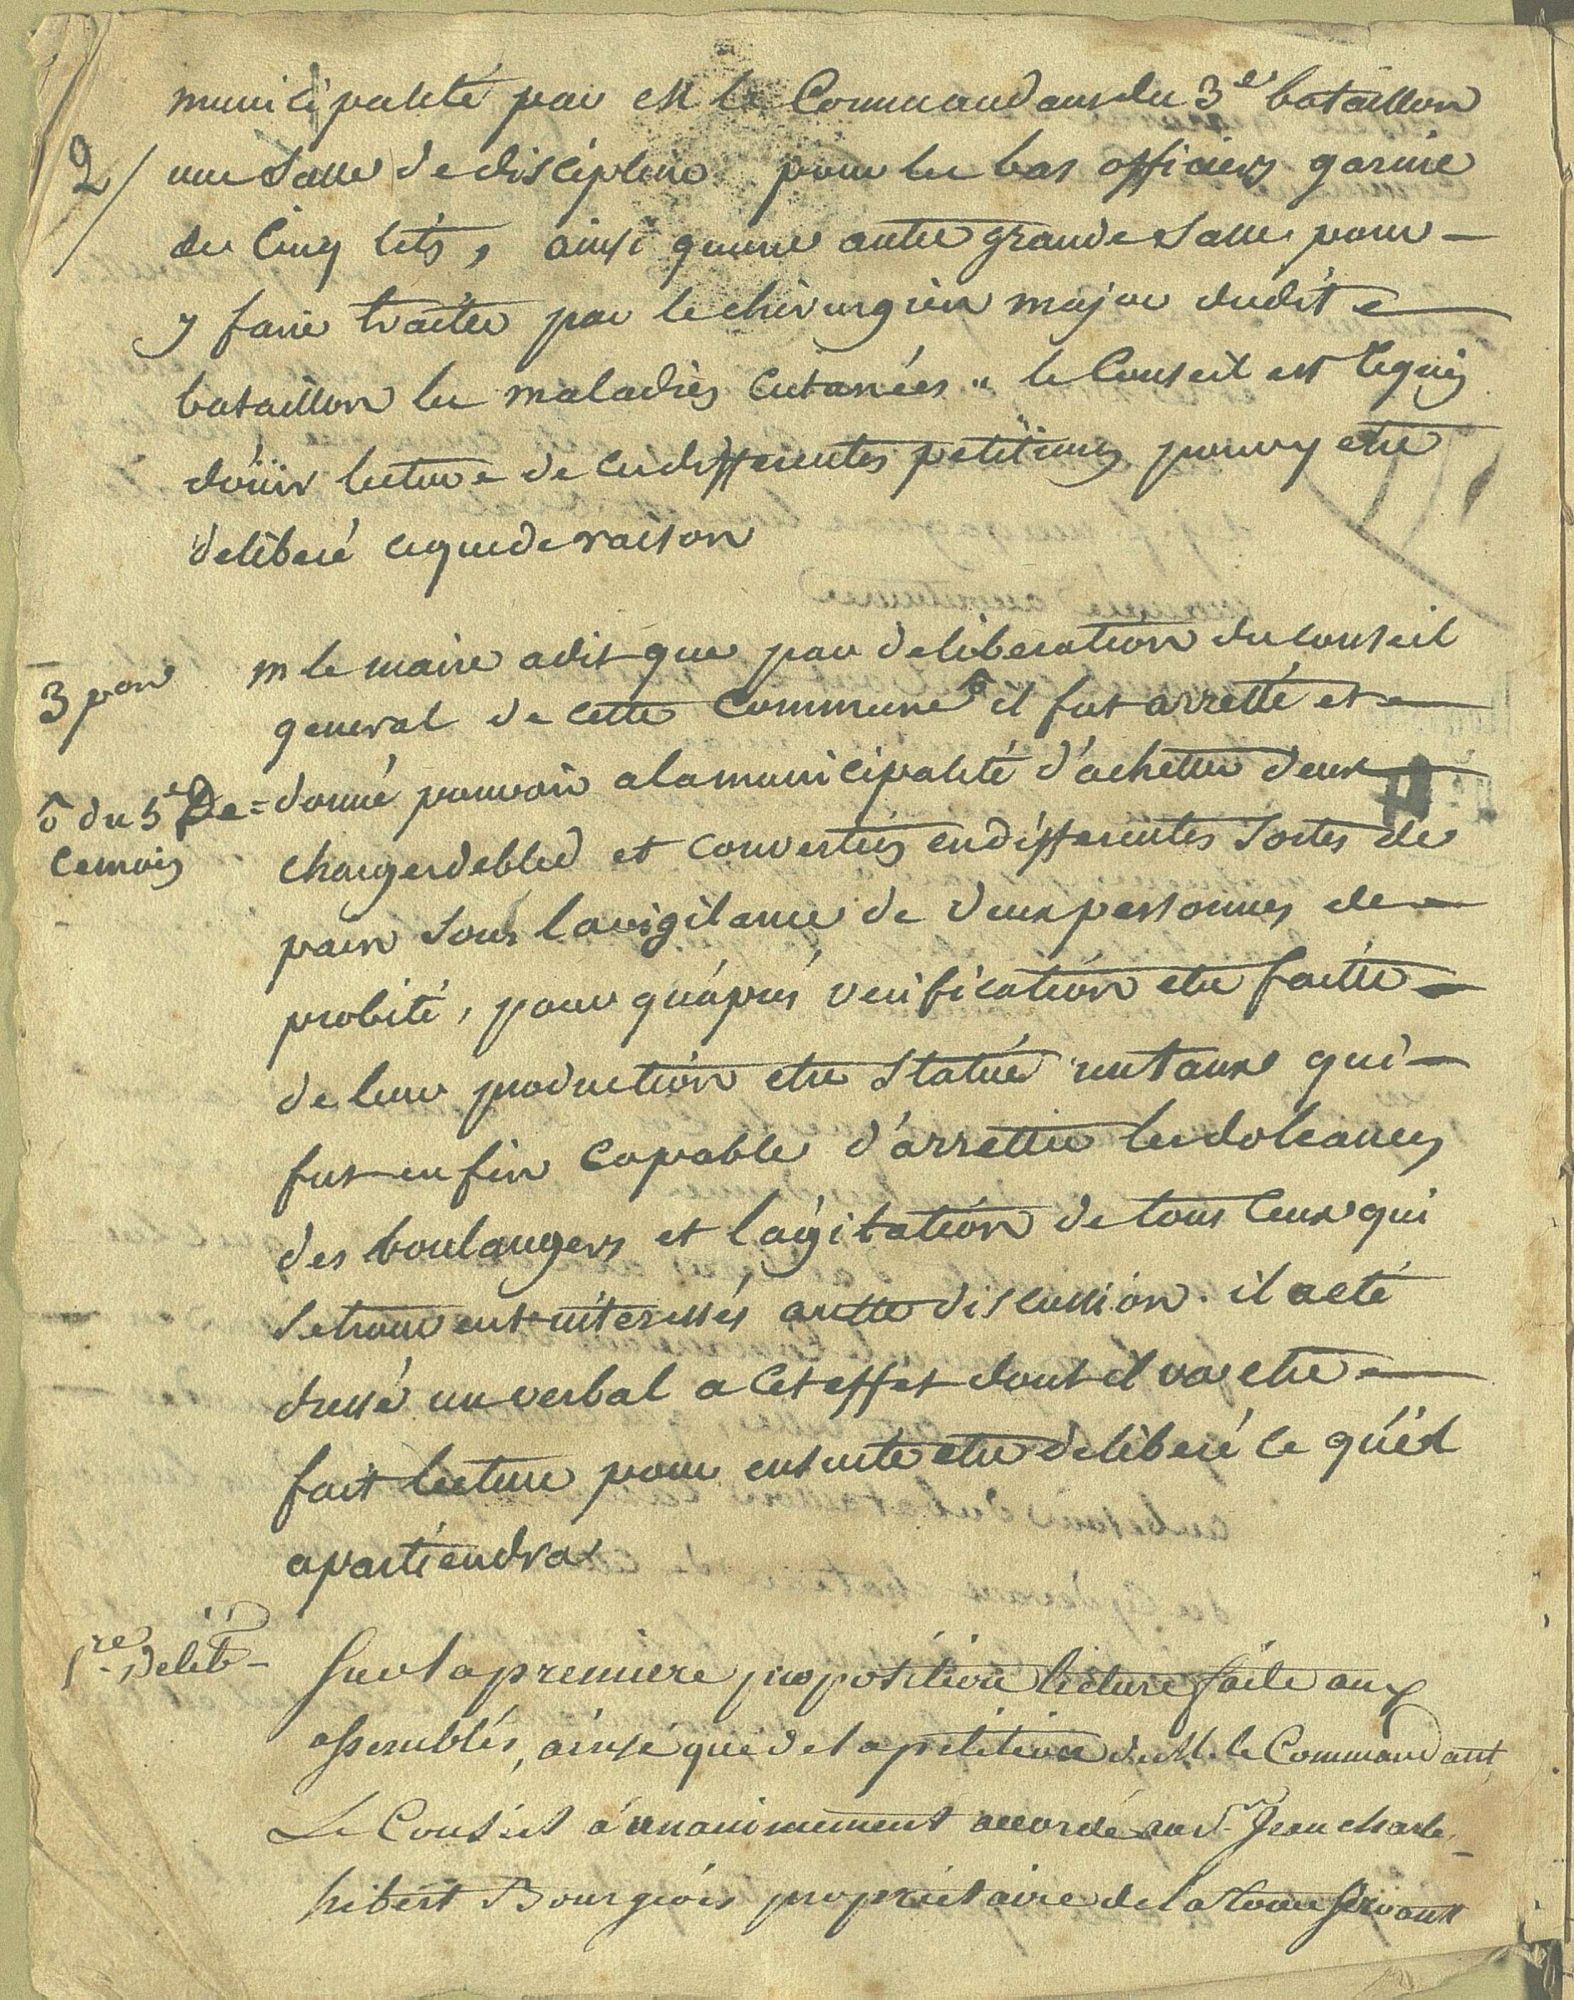 municipalité par M le Commandant du 3e bataillon
2/ une Salle de discipline pour les bas officiers garnie
de Cinq lits, ainsi qu'une autre grande Salle pour
y faire traiter par le chirurgien major dudit
bataillon les maladies Cutanées " le Conseil est requis
d'oüir lecture de ces differentes petitions pour y etre
deliberé ce que de raison
3 pon m le maire a dit que par deliberation du conseil
general de cette Commune ô il fut arretté et
ô du 5e De= donné pouvoir a la municipalité d'achetter deux
ce mois charges de bled et converties en differentes Sortes de
pain Sous la vigilance de deux personnes de
probité, pour qu'aprés verification etre faitte
de leur production etre Statué un taux qui
fut en fin Capable d'arretter les doleances
des boulangers et l'agitation de tous Ceux qui
Se trouvent interessés a cette discussion. il a eté
dressé un verbal a Cet effet dont il va etre
fait lecture pour ensuite etre deliberé ce qu'il
apartiendra
1re Delib- Sur la premiere proposition lecture faite aux
assemblés, ainsi que de la petition de M. le Commandant,
Le Conseil a unanimement accordé au Sr Jean charle
hibert Bourgeois proprietaire de la tour Servant